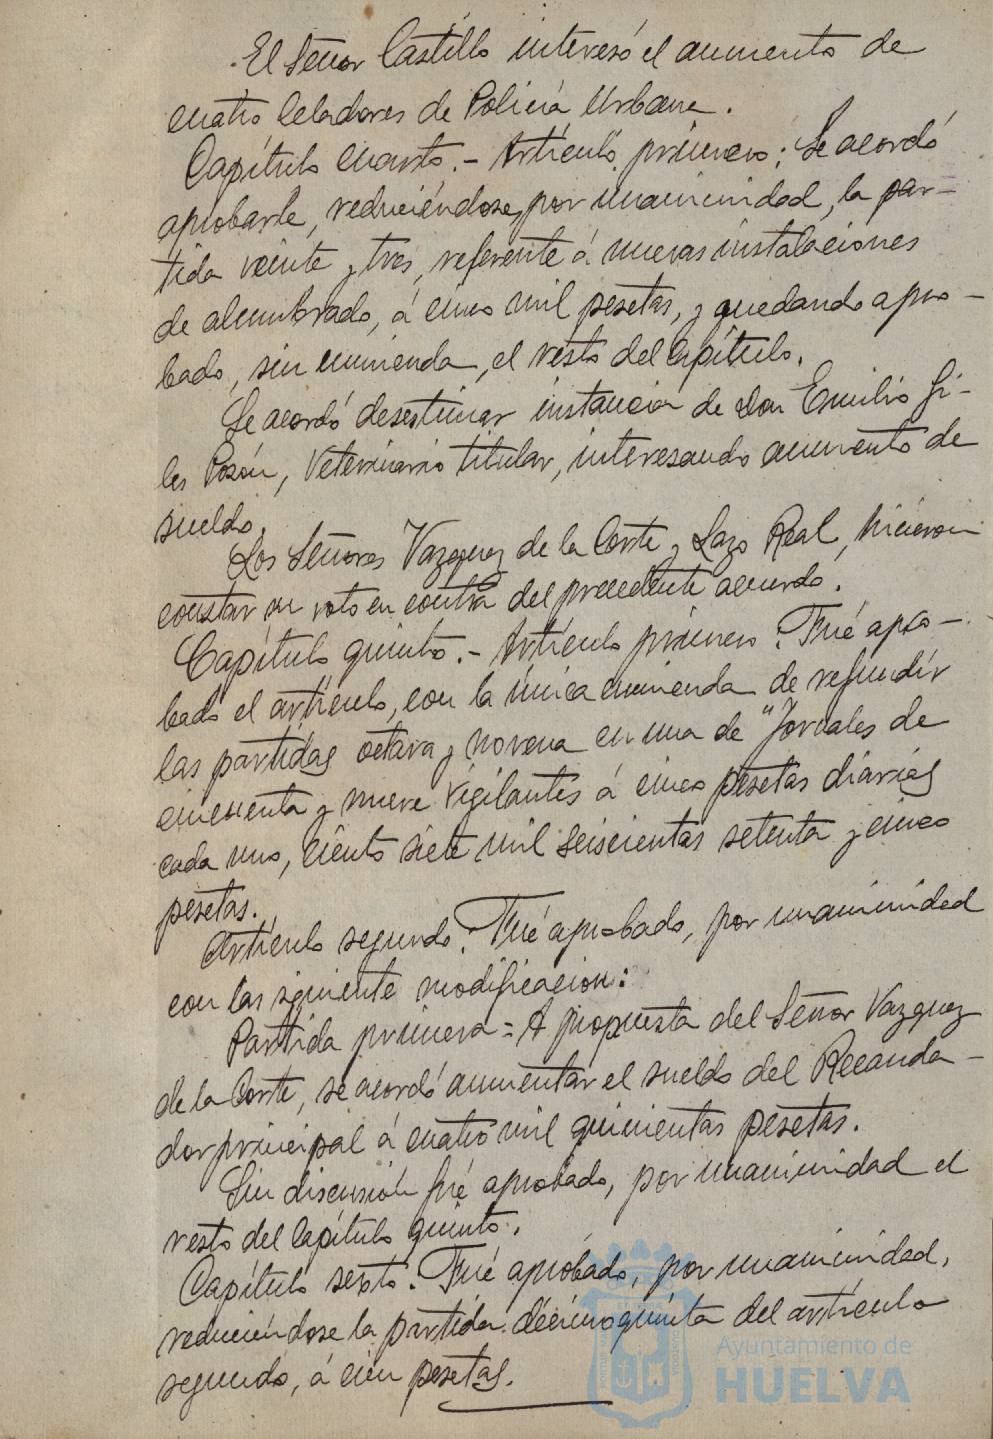 El Señor Castillo interesó el aumento de
cuatro Celadores de Policía Urbana.
Capítulo cuarto.- Artículo primero: Se acordó
aprobarle, reduciéndose, por unanimidad, la par-
tida veinte y tres, referente á nuevas instalaciones
de alumbrado, á cinco mil pesetas, y quedando apro-
bado, sin enmienda, el resto del Capítulo.
Se acordó desestimar instancia de Don Emilio Gi-
les Pozón, Veterinario titular, interesando aumento de
sueldo.
Los Señores Vazquez de la Corte y Lazo Real, hicieron
constar su voto en contra del precedente acuerdo.
Capítulo quinto.- Artículo primero: Fué apro-
bado el artículo, con la única enmienda de refundir
las partidas octava y novena en una de "Jornales de
cincuenta y nueve vigilantes á cinco pesetas diarias
cada uno, ciento siete mil seiscientas setenta y cinco
pesetas.
Artículo segundo: Fué aprobado, por unanimidad
con las siguiente modificacion:
Partida primera = A propuesta del Señor Vazquez
de la Corte, se acordó aumentar el sueldo del Recauda-
dor principal á cuatro mil quinientas pesetas.
Sin discusión fué aprobado, por unanimidad el
resto del Capítulo quinto.
Capítulo sexto: Fué aprobado, por unanimidad,
reduciéndose la partida décimoquinta del artículo
segundo, á cien pesetas.
Ayuntamiento de
HUELVA